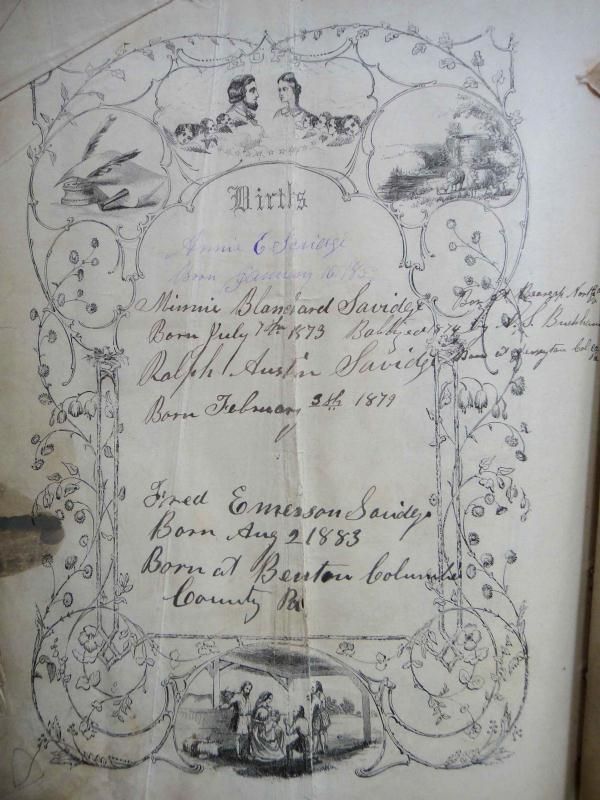 Births
Annie E Savidge
Born January 16 185
Minnie Blanchard Savidge Born at
Born July 7th 1873 Baptized 1874 by S
Ralph Austin Savidge Born at
Born February 3th 1879
Fred Emerson Savidge
Born Aug 2 1883
Born at Benton Columbia
County Pa